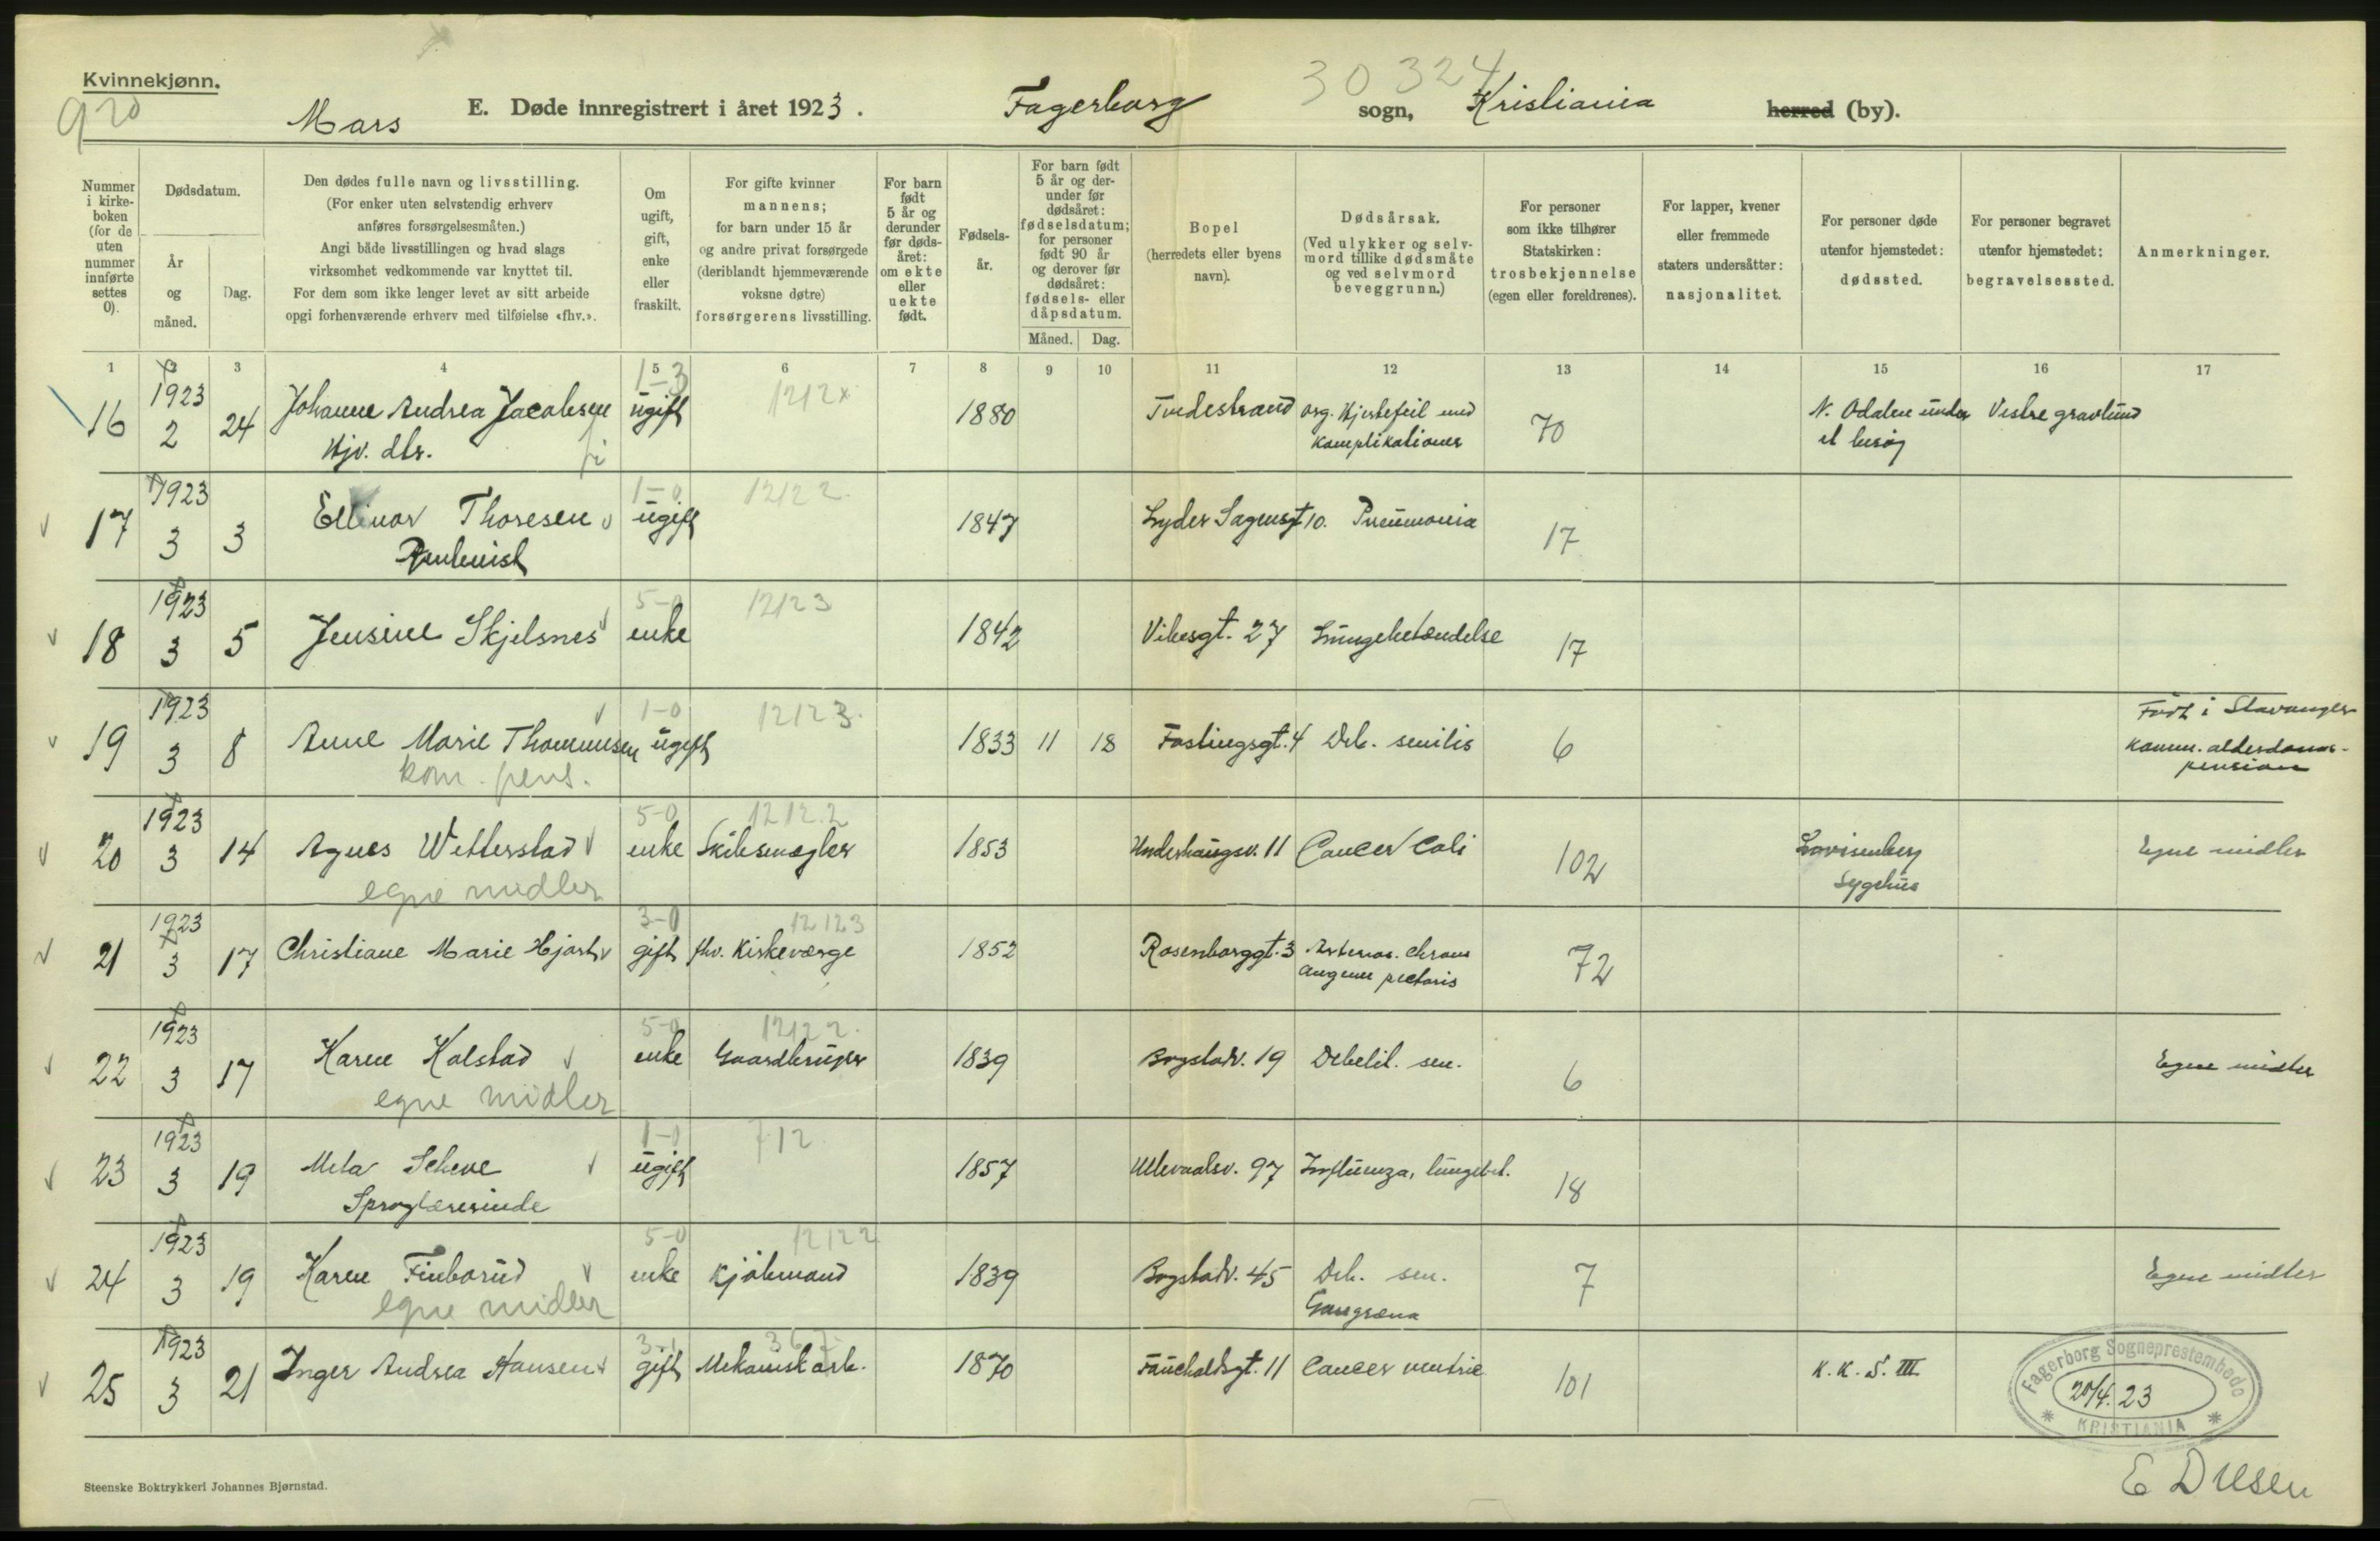 Kvinnekjønn.
920
Mars
E. Døde innregistrert i året 1923.
Fagerborg sogn, Kristiania herred (by).
30324
Nummer i kirkeboken (for de uten nummer innførte settes 0).
Dødsdatum.
År og måned.
Dag.
Den dødes fulle navn og livsstilling.
(For enker uten selvstendig erhverv anføres forsørgelsesmåten.)
Angi både livsstillingen og hvad slags virksomhet vedkommende var knyttet til.
For dem som ikke lenger levet av sitt arbeide opgi forhenværende erhverv med tilføielse «fhv.».
Om ugift, gift, enke eller fraskilt.
For gifte kvinner mannens; for barn under 15 år og andre privat forsørgede (deriblandt hjemmeværende voksne døtre) forsørgerens livsstilling.
For barn født 5 år og derunder før dødsåret: om ekte eller uekte født.
Fødselsår.
For barn født 5 år og derunder før dødsåret: fødselsdatum; for personer født 90 år og derover før dødsåret: fødsels- eller dåpsdatum.
Måned. Dag.
Bopel (herredets eller byens navn).
Dødsårsak.
(Ved ulykker og selvmord tillike dødsmåte og ved selvmord beveggrunn.)
For personer som ikke tilhører Statskirken: trosbekjennelse (egen eller foreldrenes).
For lapper, kvener eller fremmede staters undersåtter: nasjonalitet.
For personer døde utenfor hjemstedet: dødssted.
For personer begravet utenfor hjemstedet: begravelsessted.
Anmerkninger.
1 2 3 4 5 6 7 8 9 10 11 12 13 14 15 16 17
1-3 1212x
16 1923 2 24 Johanne Andrea Jacobsen ugift 1880 Tvedestrand org. Hjertefeil med 70 N. Odalen under Vestre gravlund
Hjv. dtr. komplikationer et besøg
1-0 12122
17 1923 3 3 Ellinor Thoresen ugift 1847 Lyder Sagensgt 10. Pneumonia 17
Rentenist
5-0 12123
18 1923 3 5 Jensine Skjelsnes enke 1842 Vibesgt. 27 Lungebetændelse 17
1-0 12123
19 1923 3 8 Anne Marie Thommesen ugift 1833 11 18 Fastingsgt. 4 Deb. senilis 6 Født i Stavanger
kom. pens. komm. alderdoms-
pension
5-0 12122
20 1923 3 14 Agnes Wetterstad enke Skibsmægler 1853 Underhaugsv. 11 Cancer Coli 102 Lovisenberg Egne midler
egne midler Sygehus
3-0 12123
21 1923 3 17 Christiane Marie Hjorth gift fhv. Kirkeværge 1852 Rosenborggt. 3 72
pectoris
5-0 12122
22 1923 3 17 Karen Kolstad enke Gaardbruger 1839 Bogstadv. 19 Debilit. sen. 6 Egne midler
egne midler
1-0 712
23 1923 3 19 Meta Scheve ugift 1857 Ullevaalsv. 97 Influenza, lungebet. 18
Sproglærerinde
5-0 12122
24 1923 3 19 Karen Finborud enke Kjøbmand 1839 Bogstadv. 45 Deb. sen. 7 Egne midler
egne midler Gangræna
3-1 367
25 1923 3 21 Inger Andrea Hansen gift Mekanisk arb. 1870 Fauchaldsgt. 11 Cancer ventric 101 K. K. S. III
Fagerborg Sogneprestembede
20/4. 23
KRISTIANIA
Steenske Boktrykkeri Johannes Bjørnstad.